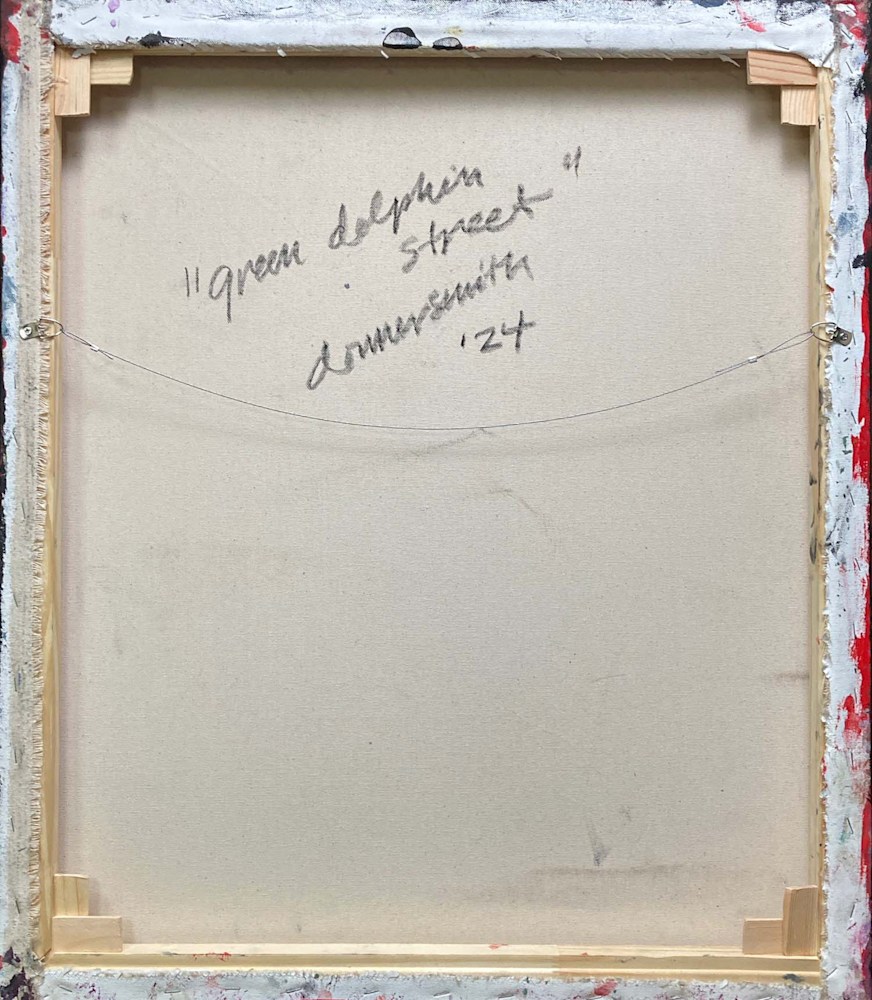 "green dolphin
street"
donnersmith
'24